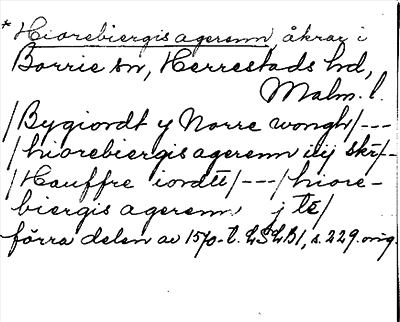 * Hiorebiergis agerenn, åkrar i
Borrie sn, Herrestads hd,
Malm. l.
/ Bygiordt y Norre wongh / ---
/ hiorebiergis agerenn iij skr /--
/ Hauffre iordtt / --- / hiore-
biergis agerenn j tė /
förra delen av 1570-t. LSLB1, s. 229. orig.